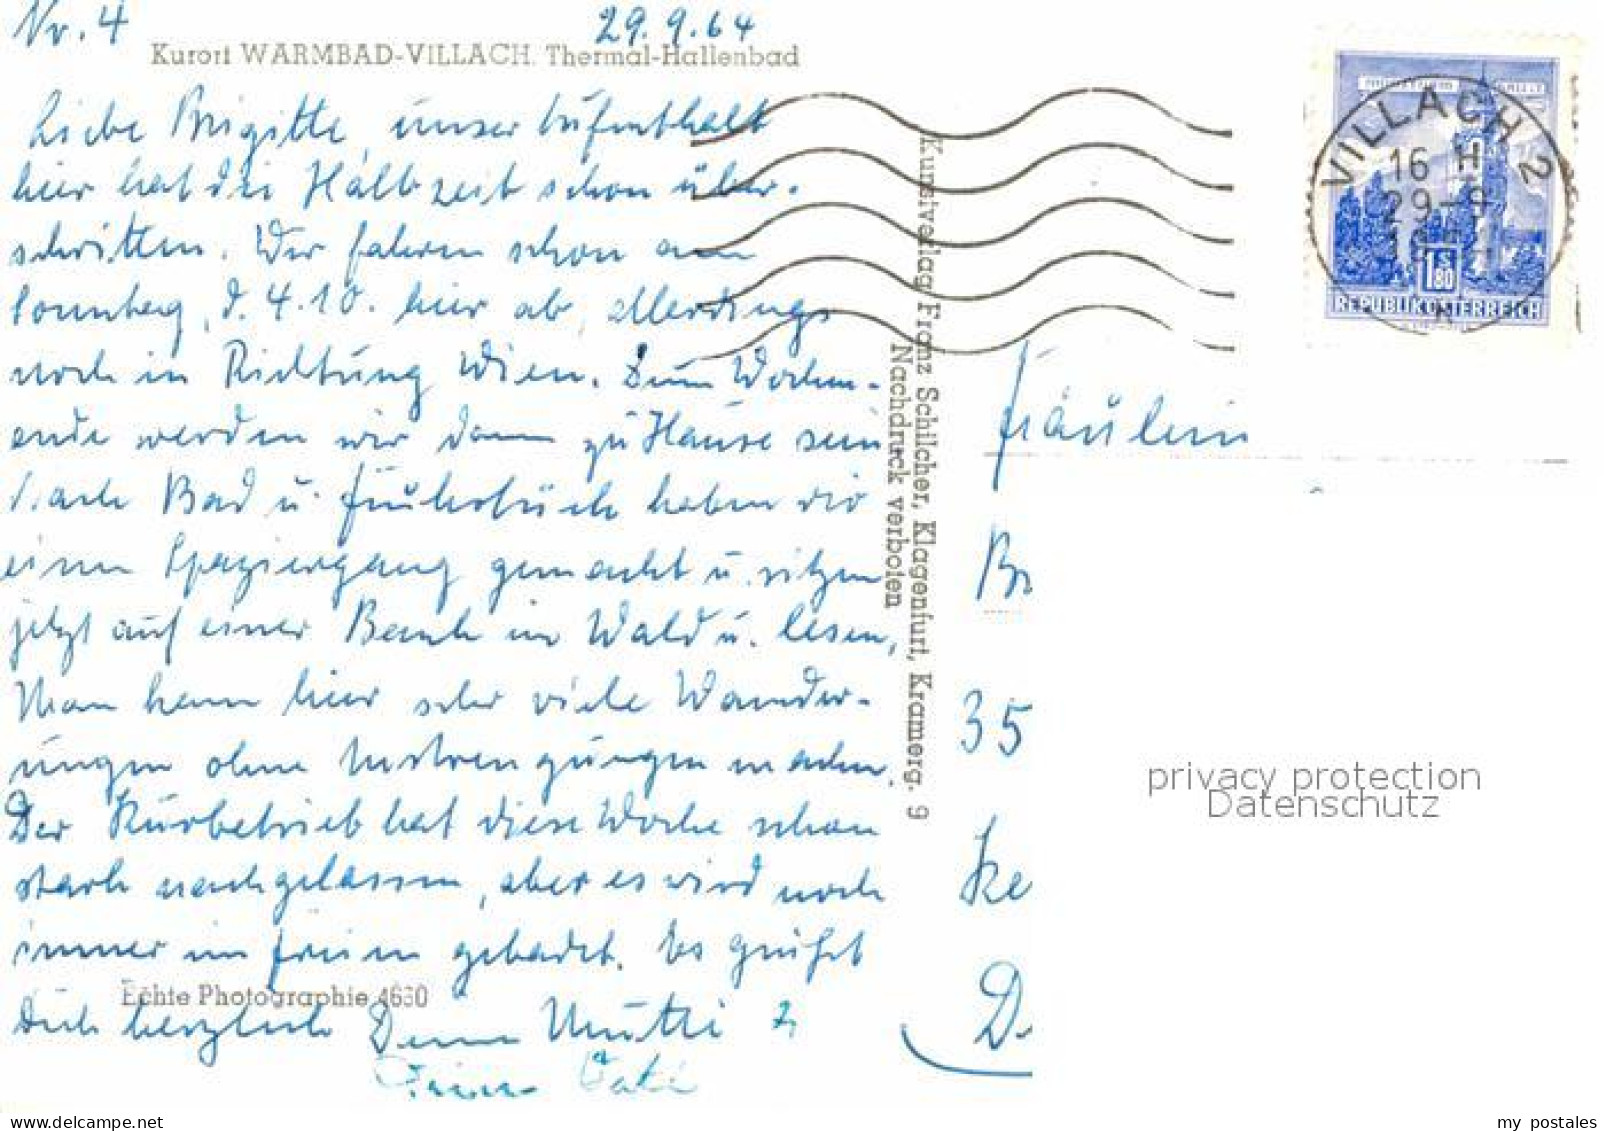 Nr. 4
29.9.64
Kurort WARMBAD-VILLACH. Thermal-Hallenbad
Liebe Brigitte, unser Aufenthalt
hier hat die Halbzeit schon über-
schritten. Wir fahren schon am
Sonntag, d. 4.10. hier ab, allerdings
noch in Richtung Wien. Zum Wochen-
ende werden wir dann zu Hause sein
Nach Bad u. Frühstück haben wir
einen Spaziergang gemacht u. sitzen
jetzt auf einer Bank im Wald u. lesen,
Man kann hier sehr viele Wander-
ungen ohne Anstrengungen machen.
Der Kurbetrieb hat diese Woche schon
stark nachgelassen, aber es wird noch
immer im freien gebadet. Es grüßt
Echte Photographie 4660
Dich herzlich Deine Mutti
Dein Vati
Kunstverlag Franz Schilcher, Klagenfurt, Kramerg. 9
Nachdruck verboten
VILLACH 2
16 H
29-9
1 S 80
REPUBLIK ÖSTERREICH
Fräulein
Br
35
Ke
D
privacy protection
Datenschutz
my postales